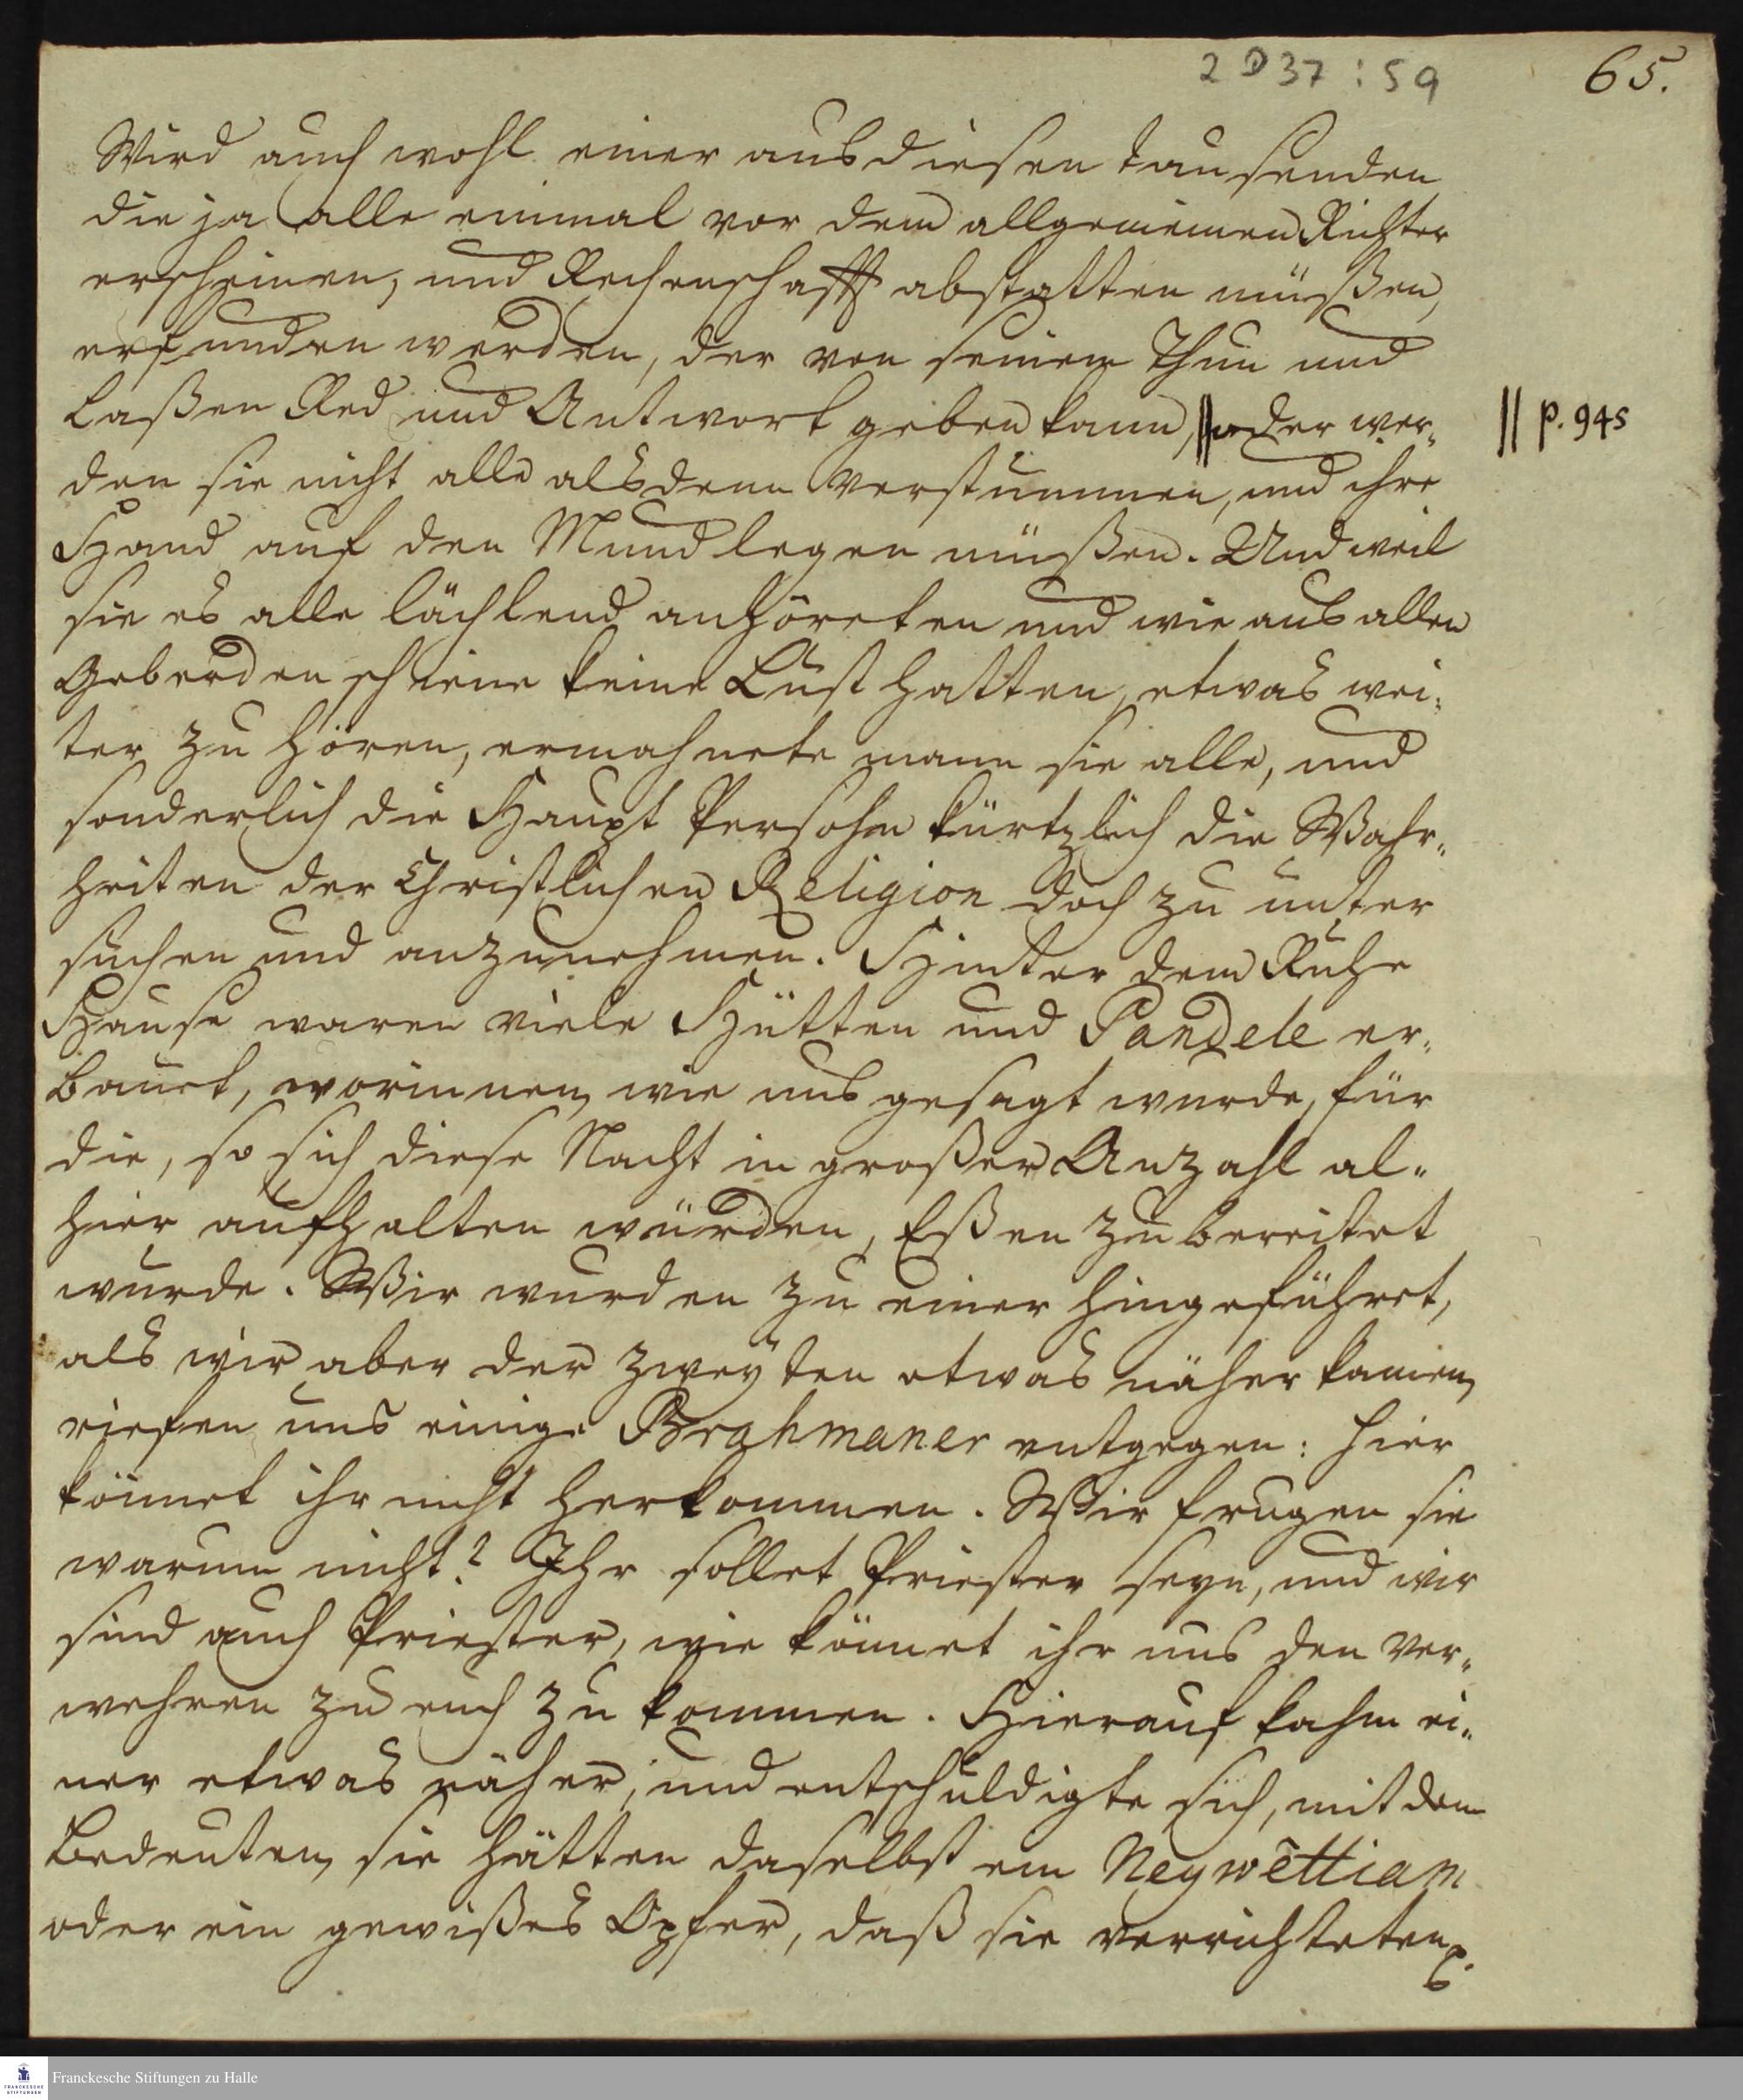 2 D 37 : 59
65.
Wird auch wohl einer aus diesen tausenden
die ja alle einmal vor dem allgemeinen Richter
erscheinen, und Rechenschafft abstatten müßen,
erfunden werden, der von seinem Thun und
Laßen Red und Antwort geben kann, || oder wer„
|| p. 945
den sie nicht alle alsdenn verstummen, und ihre
Hand auf den Mund legen müßen. Und weil
sie es alle lächlend anhöreten und wie aus allen
Geberden schiene keine Lust hatten, etwas wei„
ter zu hören, ermahnete mann sie alle, und
sonderlich die Haupt Persohn kürtzlich die Wahr„
heiten der Christlichen Religion doch zu unter
suchen und anzunehmen. Hinter dem Ruhe
Hause waren viele Hütten und Pandele er„
bauet, worinnen, wie uns gesagt wurde, für
die, so sich diese Nacht in großer Anzahl al„
hier aufhalten würden, Eßen zubereitet
wurde. Wir wurden zu einer hingeführet,
als wir aber der zweÿten etwas näher kamen,
riefen uns einige Brahmaner entgegen: hier
könnet ihr nicht herkommen. Wir frugen sie
warum nicht? Ihr sollet Priester seyn, und wir
sind auch Priester, wie könnet ihr uns den ver„
wehren zu euch zu kommen. Hierauf kahm ei„
ner etwas näher, und entschuldigte sich, mit dem
Bedeuten, sie hätten daselbst ein Neywettiam
oder ein gewißes Opfer, daß sie verrichteten
Franckesche Stiftungen zu Halle
FRANCKESCHE
STIFTUNGEN